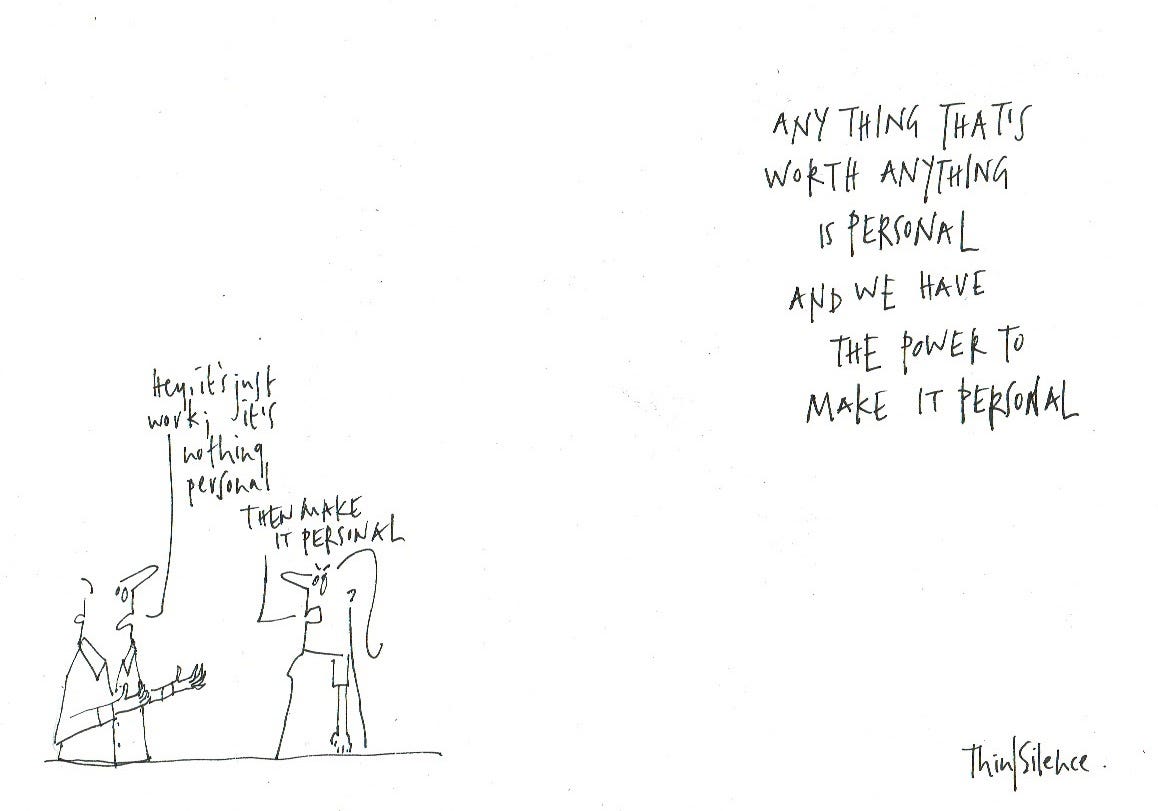 Hey, it's just
work; it's
nothing
personal
THEN MAKE
IT PERSONAL
ANY THING THAT'S
WORTH ANYTHING
IS PERSONAL
AND WE HAVE
THE POWER TO
MAKE IT PERSONAL
Think/Silence.